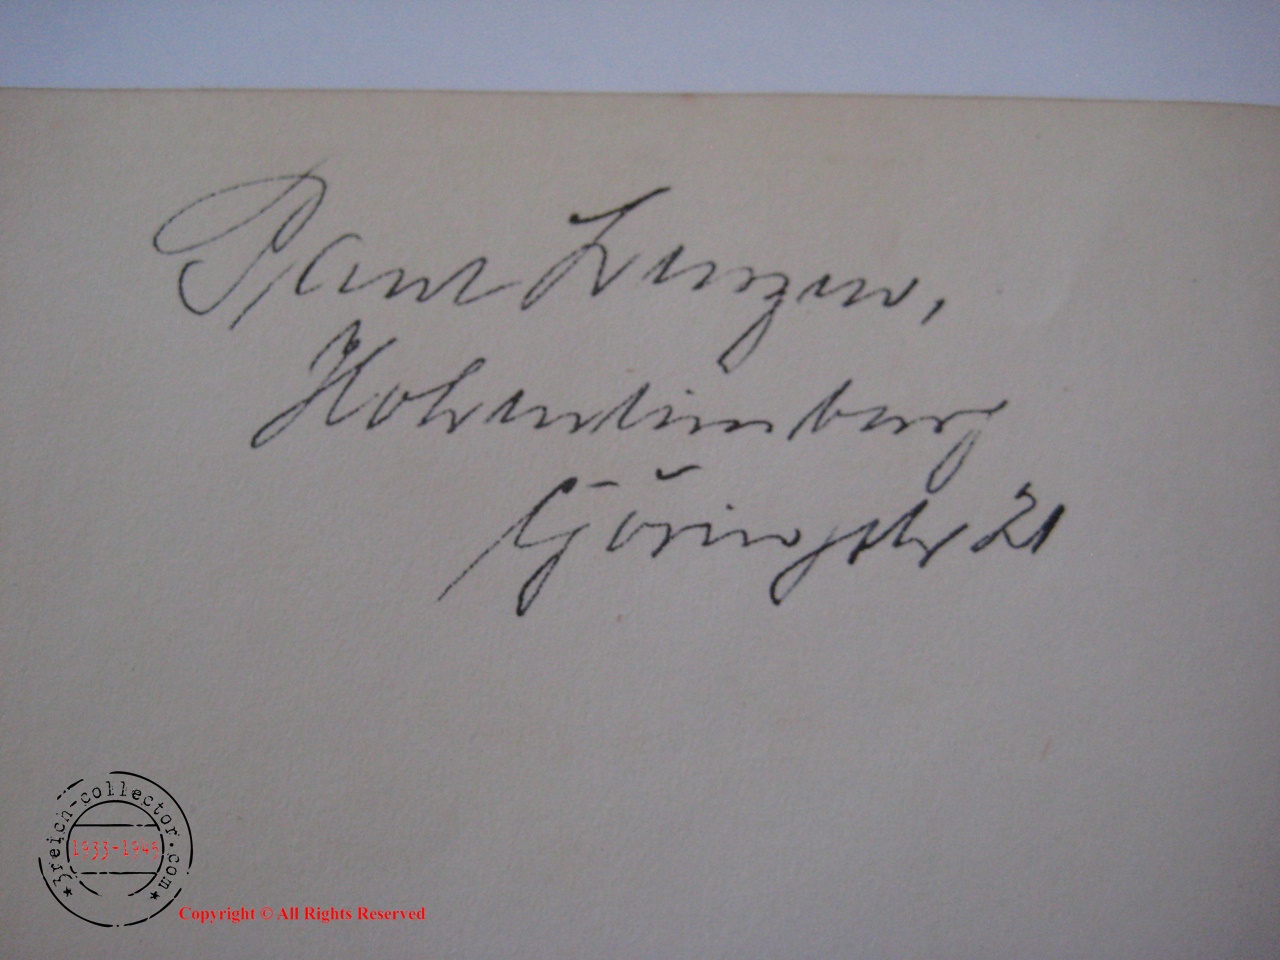 Paul Lenzen,
Hohenlimburg
Göringstr 21
3reich-collector.com
1933-1945
Copyright © All Rights Reserved